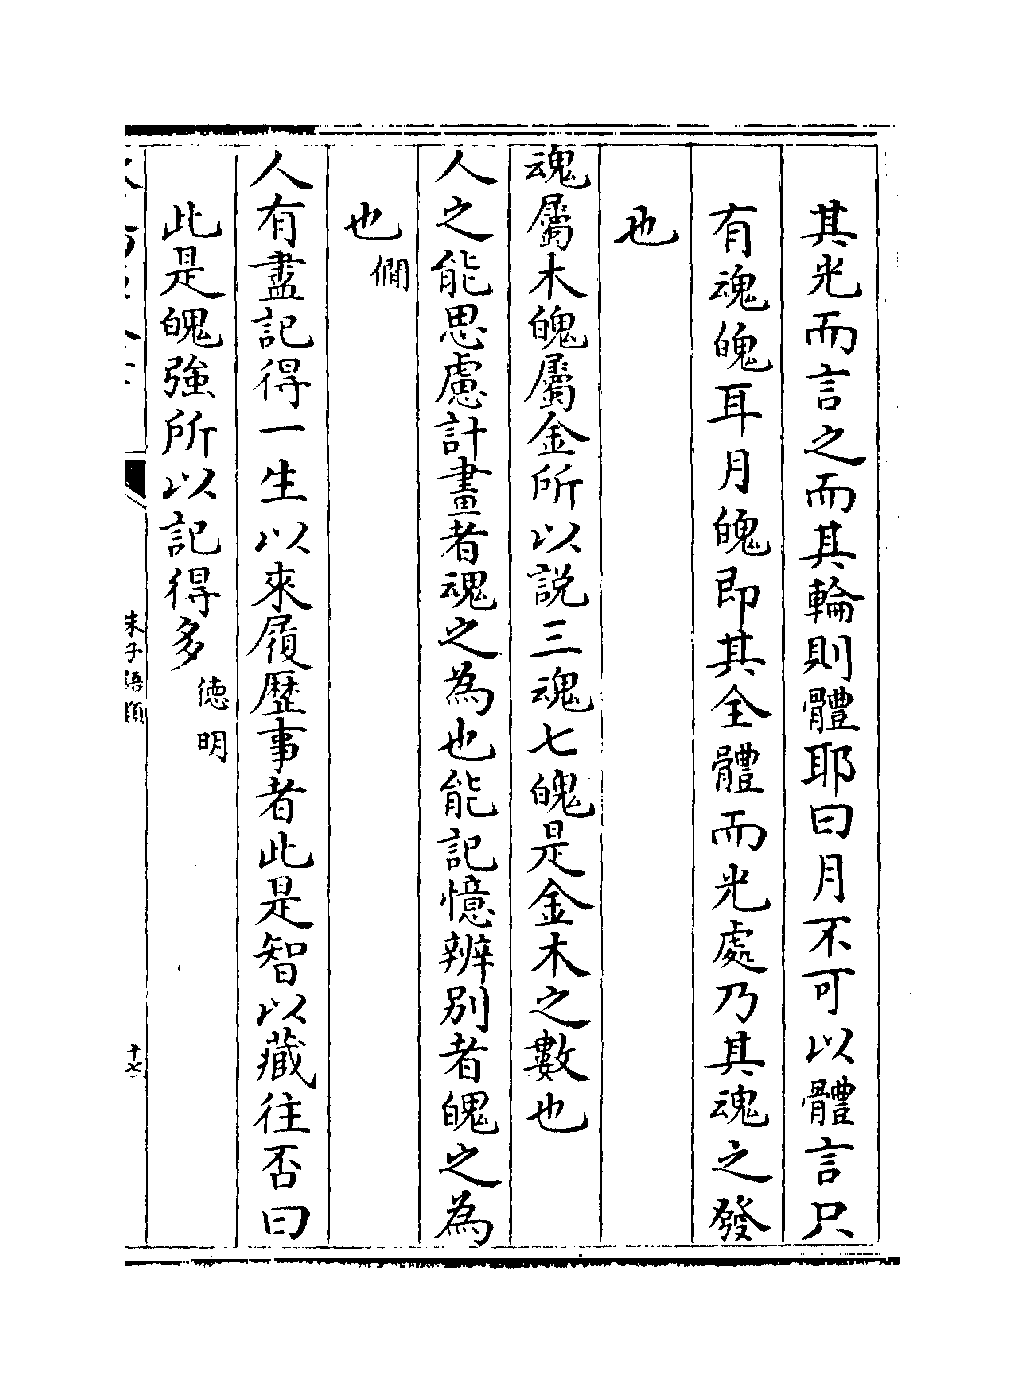 其光而言之而其輪則體耶曰月不可以體言只
有魂魄耳月魄即其全體而光處乃其魂之發
也
魂屬木魄屬金所以説三魂七魄是金木之數也
人之能思慮計畫者魂之為也能記憶辨别者魄之為
也 僩
人有盡記得一生以來履歷事者此是智以藏往否曰
此是魄強所以記得多 徳明
朱子語類
十七